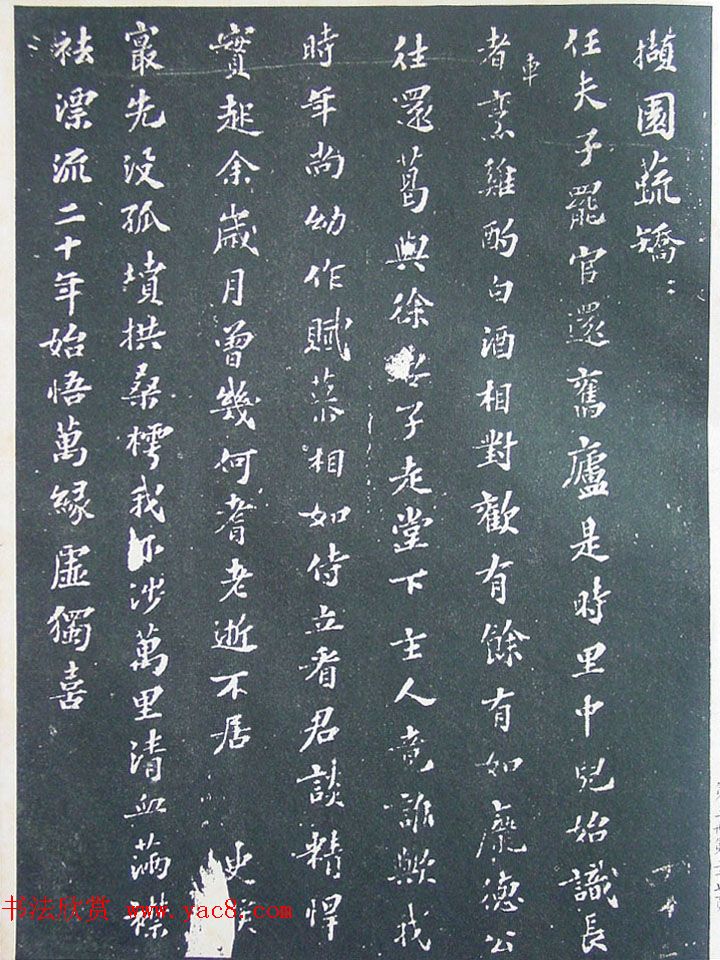 擷園蔬矯:
任夫子罷官還舊廬是時里中兒始識長
者車烹雞酌白酒相對歡有餘有如龐德公
往還葛與徐妻子走堂下主人竟誰歟我
時年尚幼作賦慕相如侍立看君談精悍
實起余歲月曾幾何耆老逝不居 史侯
最先没孤墳拱桑樗我亦涉萬里清血滿襟
袪漂流二十年始悟萬緣虛獨喜
书法欣赏 www.yac8.com